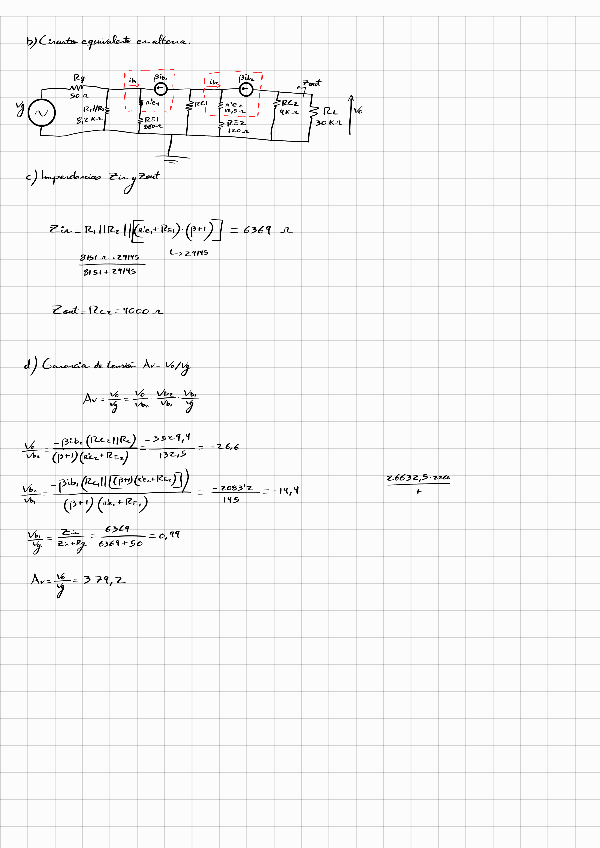 b) Circuito equivalente en alterna.
Rg
50 Ω
Vg
R1||R2
8,2 KΩ
ib1
βib1
r'e1
RE1
RC1
ib2
βib2
r'e2
12,5 Ω
RE2
120 Ω
Zout
RC2
4K Ω
RL
30 KΩ
Vo
c) Impedancias Zin y Zout
Zin = R1||R2||[(r'e1+RE1)·(β+1)] = 6369 Ω
8151 Ω · 29145
8151 + 29145
↳ 29145
Zout = RC2 = 4000 Ω
d) Ganancia de tensión Av = Vo/Vg
Av = Vo/Vg = Vo/Vb2 · Vb2/Vb1 · Vb1/Vg
Vo/Vb2 = -βib2 (RC2||RL) / (β+1)(r'e2+RE2) = -3529,4 / 132,5 = -26,6
= / 145 = -14,4
Vb1/Vg = Zin / Zin+Rg = 6369 / 6369+50 = 0,99
Av = Vo/Vg = 379,2